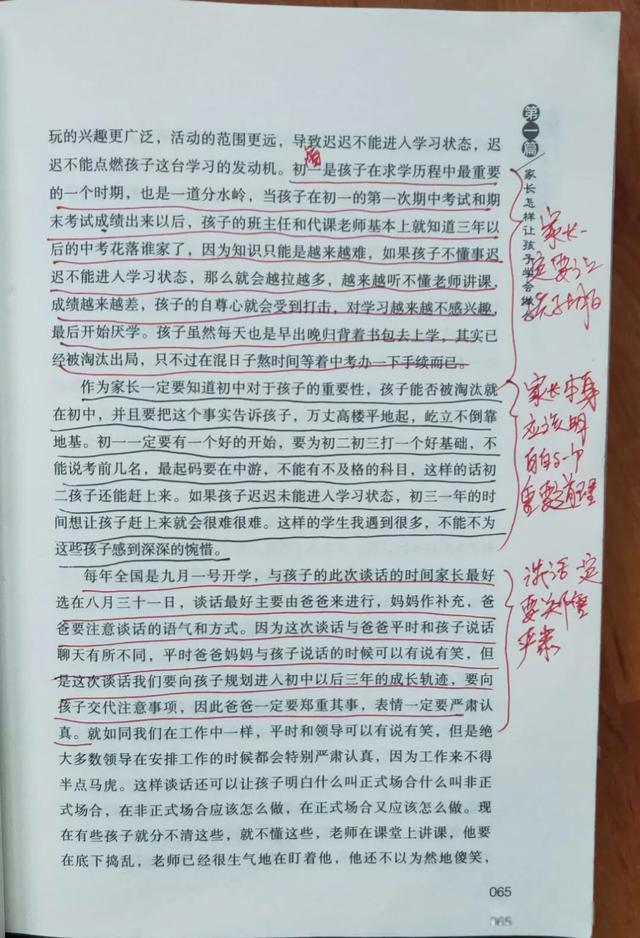 玩的兴趣更广泛，活动的范围更远，导致迟迟不能进入学习状态，迟
迟不能点燃孩子这台学习的发动机。初一是孩子在求学历程中最重要
的一个时期，也是一道分水岭，当孩子在初一的第一次期中考试和期
末考试成绩出来以后，孩子的班主任和代课老师基本上就知道三年以
后的中考花落谁家了，因为知识只能是越来越难，如果孩子不懂事迟
迟不能进入学习状态，那么就会越拉越多，越来越听不懂老师讲课，
成绩越来越差，孩子的自尊心就会受到打击，对学习越来越不感兴趣，
最后开始厌学。孩子虽然每天也是早出晚归背着书包去上学，其实已
经被淘汰出局，只不过在混日子熬时间等着中考办一下手续而已。
作为家长一定要知道初中对于孩子的重要性，孩子能否被淘汰就
在初中，并且要把这个事实告诉孩子，万丈高楼平地起，屹立不倒靠
地基。初一一定要有一个好的开始，要为初二初三打一个好基础，不
能说考前几名，最起码要在中游，不能有不及格的科目，这样的话初
二孩子还能赶上来。如果孩子迟迟未能进入学习状态，初三一年的时
间想让孩子赶上来就会很难很难。这样的学生我遇到很多，不能不为
这些孩子感到深深的惋惜。
每年全国是九月一号开学，与孩子的此次谈话的时间家长最好
选在八月三十一日，谈话最好主要由爸爸来进行，妈妈作补充，爸
爸要注意谈话的语气和方式。因为这次谈话与爸爸平时和孩子说话
聊天有所不同，平时爸爸妈妈与孩子说话的时候可以有说有笑，但
是这次谈话我们要向孩子规划进入初中以后三年的成长轨迹，要向
孩子交代注意事项，因此爸爸一定要郑重其事，表情一定要严肃认
真。就如同我们在工作中一样，平时和领导可以有说有笑，但是绝
大多数领导在安排工作的时候都会特别严肃认真，因为工作来不得
半点马虎。这样谈话还可以让孩子明白什么叫正式场合什么叫非正
式场合，在非正式场合应该怎么做，在正式场合又应该怎么做。现
在有些孩子就分不清这些，就不懂这些，老师在课堂上讲课，他要
在底下捣乱，老师已经很生气地在盯着他，他还不以为然地傻笑，
第一篇
家长怎样让孩子学会
家长一
定要让
孩子明白
家长本身
应该明
白自
重要
谈话一定
要郑重
严肃
065